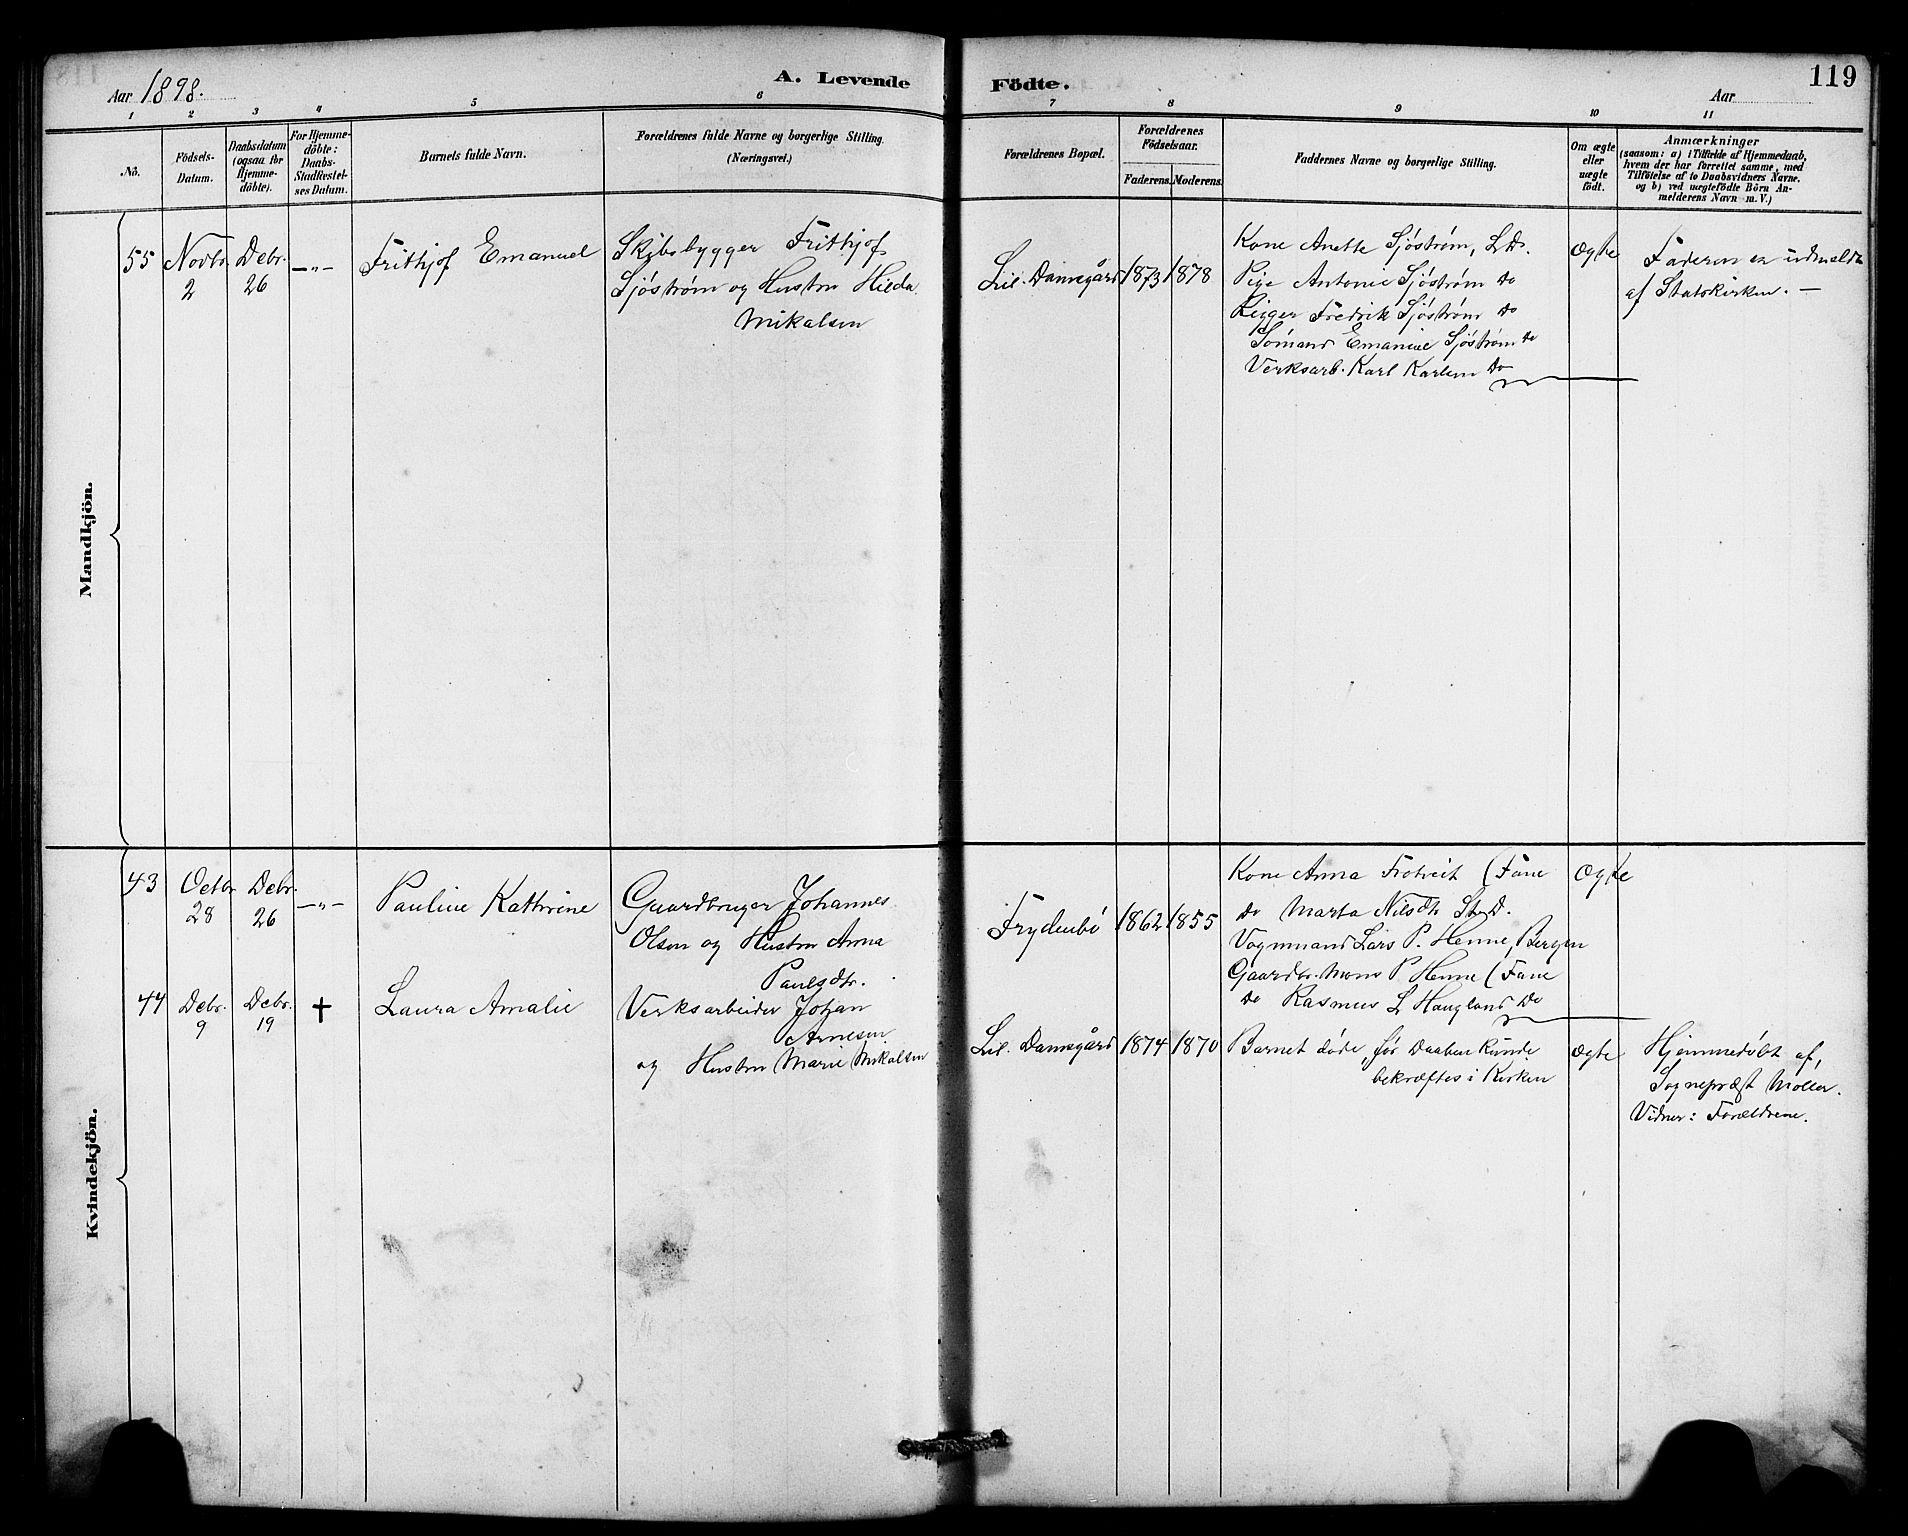 Aar 1898.
A. Levende Födte.
119
Aar
1 2 3 4 5 6 7 8 9 10 11
No.
Födsels-
Datum.
Daabsdatum
(ogsaa for
Hjemme-
döbte).
For Hjemme-
döbte:
Daabs-
Stadfæstel-
ses Datum.
Barnets fulde Navn.
Forældrenes fulde Navne og borgerlige Stilling.
(Næringsvei.)
Forældrenes Bopæl.
Forældrenes
Födselsaar.
Faderens. Moderens.
Faddernes Navne og borgerlige Stilling.
Om ægte
eller
uægte
födt.
Anmærkninger
(saasom: a) i Tilfælde af Hjemmedaab,
hvem der har forrettet samme, med
Tilföielse af to Daabsvidners Navne.
og b) ved uægtefödte Börn An-
melderens Navn m. V.)
Mandkjön.
55
Novbr.
2
Debr.
26
—„—
Frithjof Emanuel
Skibsbygger Frithjof
Sjöström og Hustru Hilda
Mikalsen
Lil. Damsgård
1873
1878
Kone Anette Sjöström, L D.
Pige Antonie Sjöström Do
Rigger Fredrik Sjöström Do
Sömand Emanuel Sjöström Do
Verksarb. Karl Karlsen Do
Ægte
Faderen er udmeldt
af Statskirken. —
Kvindekjön.
43
Octbr
28
Debr.
26
—„—
Pauline Kathrine
Gaardbruger Johannes
Olsen og Hustru Anna
Paulsdtr.
Frydenbö
1862
1855
Kone Anna Frotveit (Fane
Do Marta Nilsdtr St. D.
Vognmand Lars P. Henne, Bergen
Gaardbr. Mons P Henne (Fane
Do Rasmus L Haugland Do
Ægte
44
Debr.
9
Debr.
19
†
Laura Amalie
Verksarbeider Johan
Arnesen
og Hustru Marie Mikalsen
Lil. Damsgård
1874
1870
Barnet döde, för Daaben kunde
bekræftes i Kirken
ægte
Hjemmedöbt af,
Sognepræst Möller.
Vidner: Forældrene.